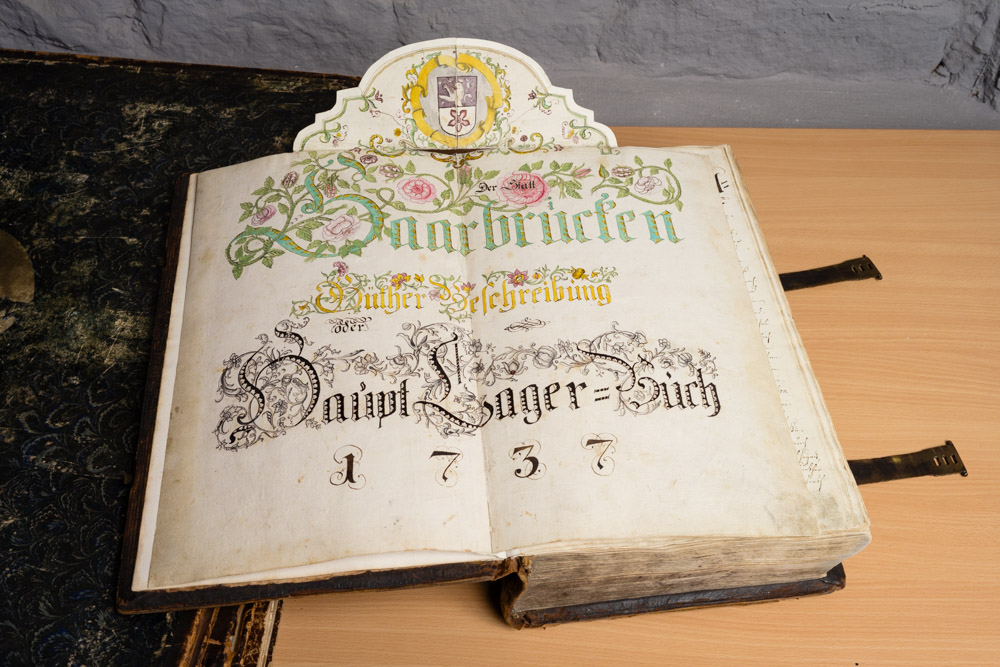 Der Statt
Saarbrücken
Guther Beschreibung
oder
Haupt Lager=Buch
1737